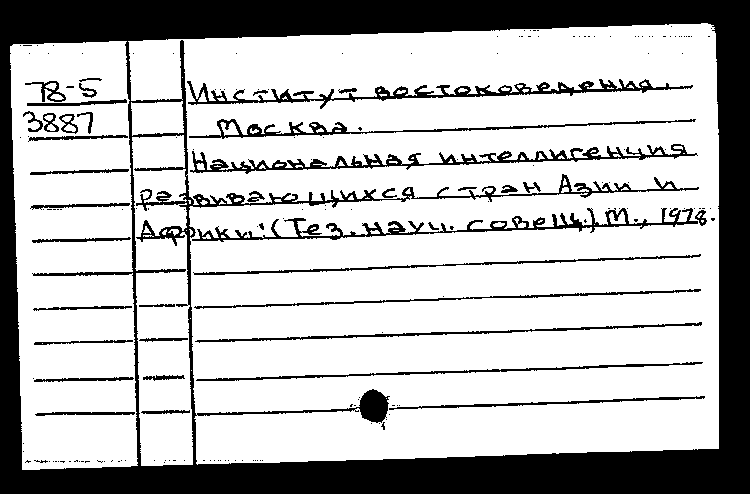 78-5 Институт востоковедения.
3887 Москва.
Национальная интеллигенция
развивающихся стран Азии и
Африки: (Тез. науч. совещ.) М., 1978.